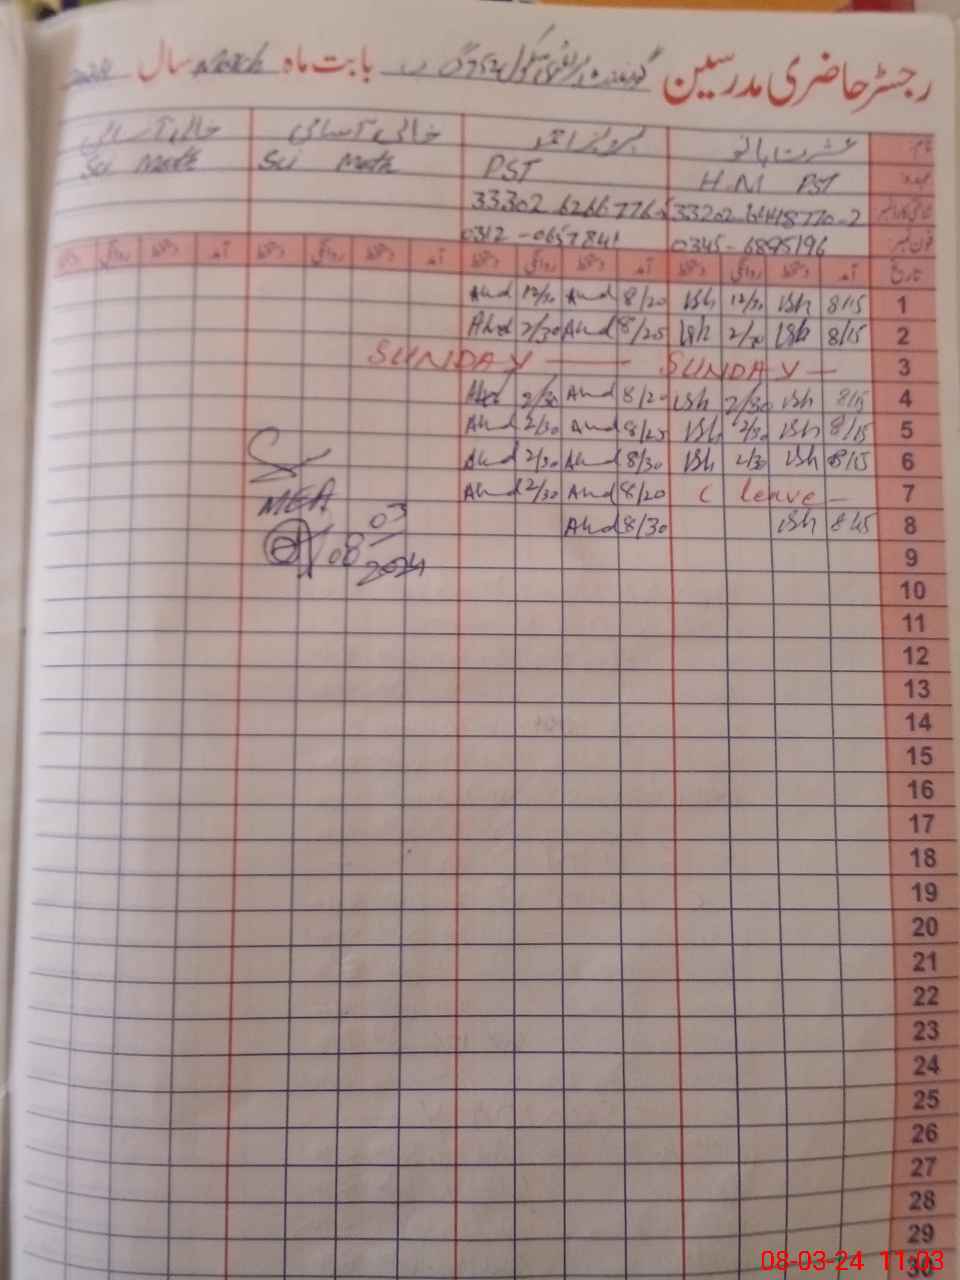 رجسٹر حاضری مدرسین گورنمنٹ پرائمری سکول بابت ماہ March سال 2024
نام عشرت بانو خالی آسامی خالی آسامی
عہدہ H.M PST PST Sci Math Sci Math
33302 6266776
فون نمبر 0345-6895196 0312-0657841
تاریخ آمد دستخط روانگی دستخط آمد دستخط روانگی دستخط آمد دستخط روانگی دستخط آمد دستخط روانگی دستخط
1 8/15 ish 12/30 ish 8/20 And 12/30 And
2 8/15 ish 2/30 ish 8/25 And 2/30 And
3 SUNDAY — SUNDAY —
4 8/15 ish 2/30 ish 8/20 And 2/30
5 8/15 ish 2/30 ish 8/25 And 2/30 And
6 8/15 ish 2/30 ish 8/30 And 2/30 And
7 ( leave — 8/20 And 2/30 And
MEA
8 8/15 ish 8/30 And
08/03/2024
9
10
11
12
13
14
15
16
17
18
19
20
21
22
23
24
25
26
27
28
29
30
08-03-24 11:03